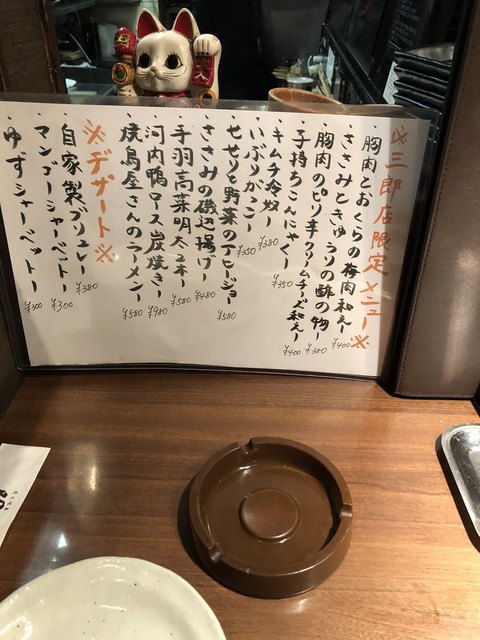 ※三郎店限定メニュー※
胸肉とおくらの梅肉和え ¥400
ささみときゅうりの酢の物 ¥380
胸肉のピリ辛クリームチーズ和え ¥400
子持ちこんにゃく ¥350
キムチ冷奴 ¥380
いぶりがっこ ¥350
せせりと野菜のアヒージョ ¥580
ささみの磯辺揚げ ¥480
手羽高菜明太2本 ¥580
河内鴨ロース炭焼き ¥980
焼鳥屋さんのラーメン ¥580
※デザート※
自家製ブリュレ ¥380
マンゴーシャーベット ¥300
ゆずシャーベット ¥300